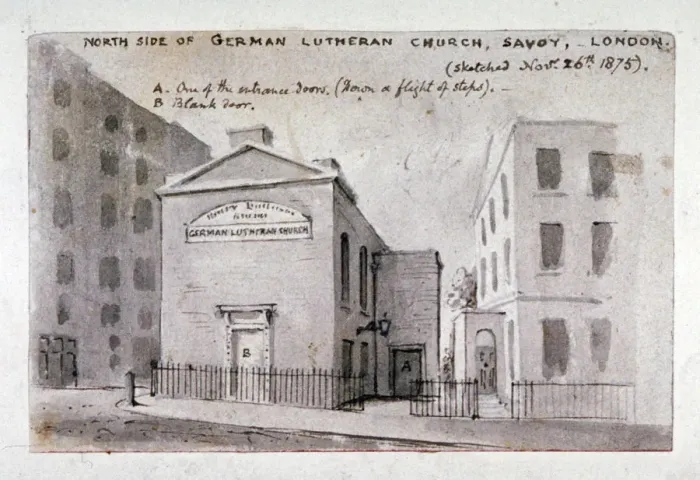 NORTH SIDE OF GERMAN LUTHERAN CHURCH, SAVOY, - LONDON.
(sketched Novr. 26th. 1875).
A. One of the entrance doors. (Down a flight of steps). -
B Blank door.
GERMAN LUTHERAN CHURCH
B
A